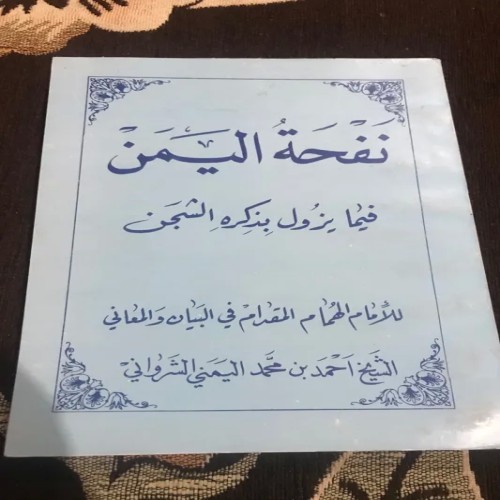 نَفْحَةُ اليَمَنْ
فيما يزول بِذِكره الشجَن
للأمام الهُمام المقدام في البَيان وَالمعَاني
الشَيْخ أحمَد بن محمَّد اليمَني الشرواني